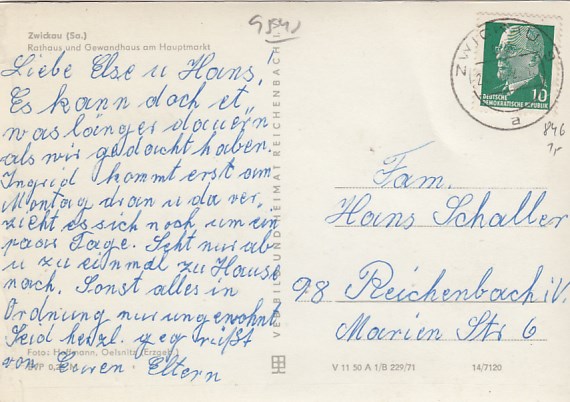 Zwickau (Sa.)
Rathaus und Gewandhaus am Hauptmarkt
Liebe Else u Hans,
Es kann doch et,
was länger dauern
als wir gedacht haben.
Ingrid kommt erst am
Montag dran u da ver,
zieht es sich noch um ein
paar Tage. Seht nur ab
u zu einmal zu Hause
nach. Sonst alles in
Ordnung nur ungewohnt
Seid herzl. gegrüßt
von Euren Eltern
Foto: Hoffmann, Oelsnitz (Erzgeb.)
EVP 0,20
VEB BILD UND HEIMAT REICHENBACH I. V.
ZWICKAU
a
10
DEUTSCHE
DEMOKRATISCHE REPUBLIK
846
1,-
Fam.
Hans Schaller
98 Reichenbach i. V.
Marien Str 6
V 11 50 A 1/B 229/71
14/7120